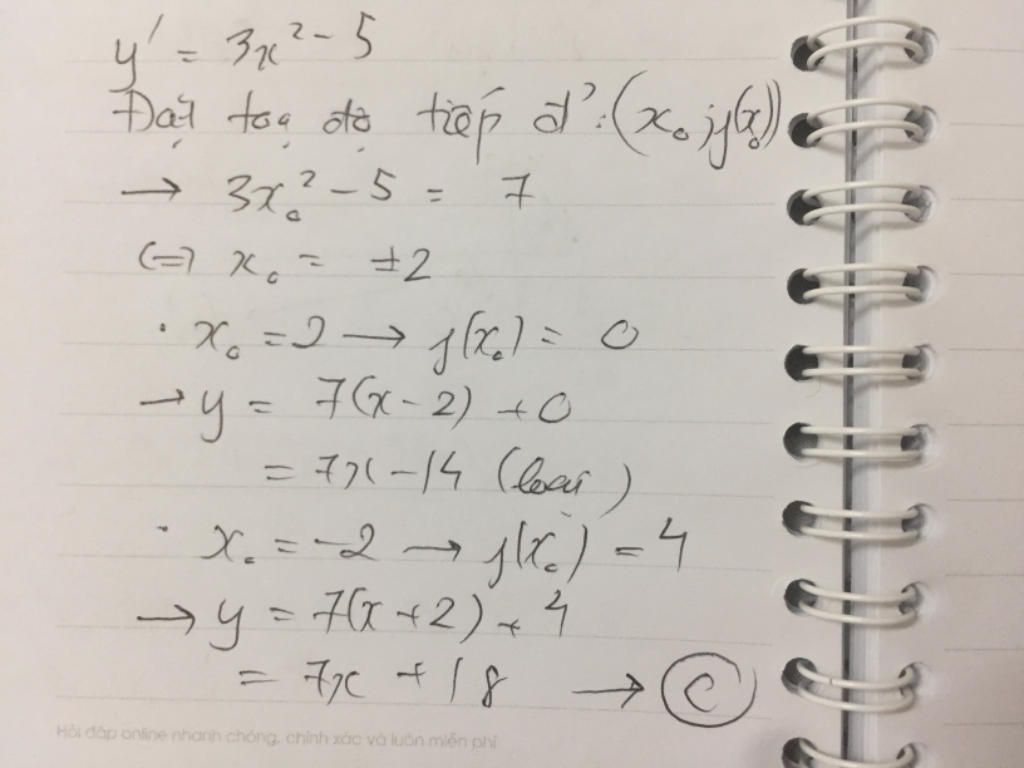 y' = 3x² - 5
Đặt toạ độ tiếp đ': (x₀; y(x₀))
→ 3x₀² - 5 = 7
(=) x₀ = ±2
· x₀ = 2 → y(x₀) = 0
→ y = 7(x - 2) + 0
= 7x - 14 (loại)
· x₀ = -2 → y(x₀) = 4
→ y = 7(x + 2) + 4
= 7x + 18 → C
Hỏi đáp online nhanh chóng, chính xác và luôn miễn phí